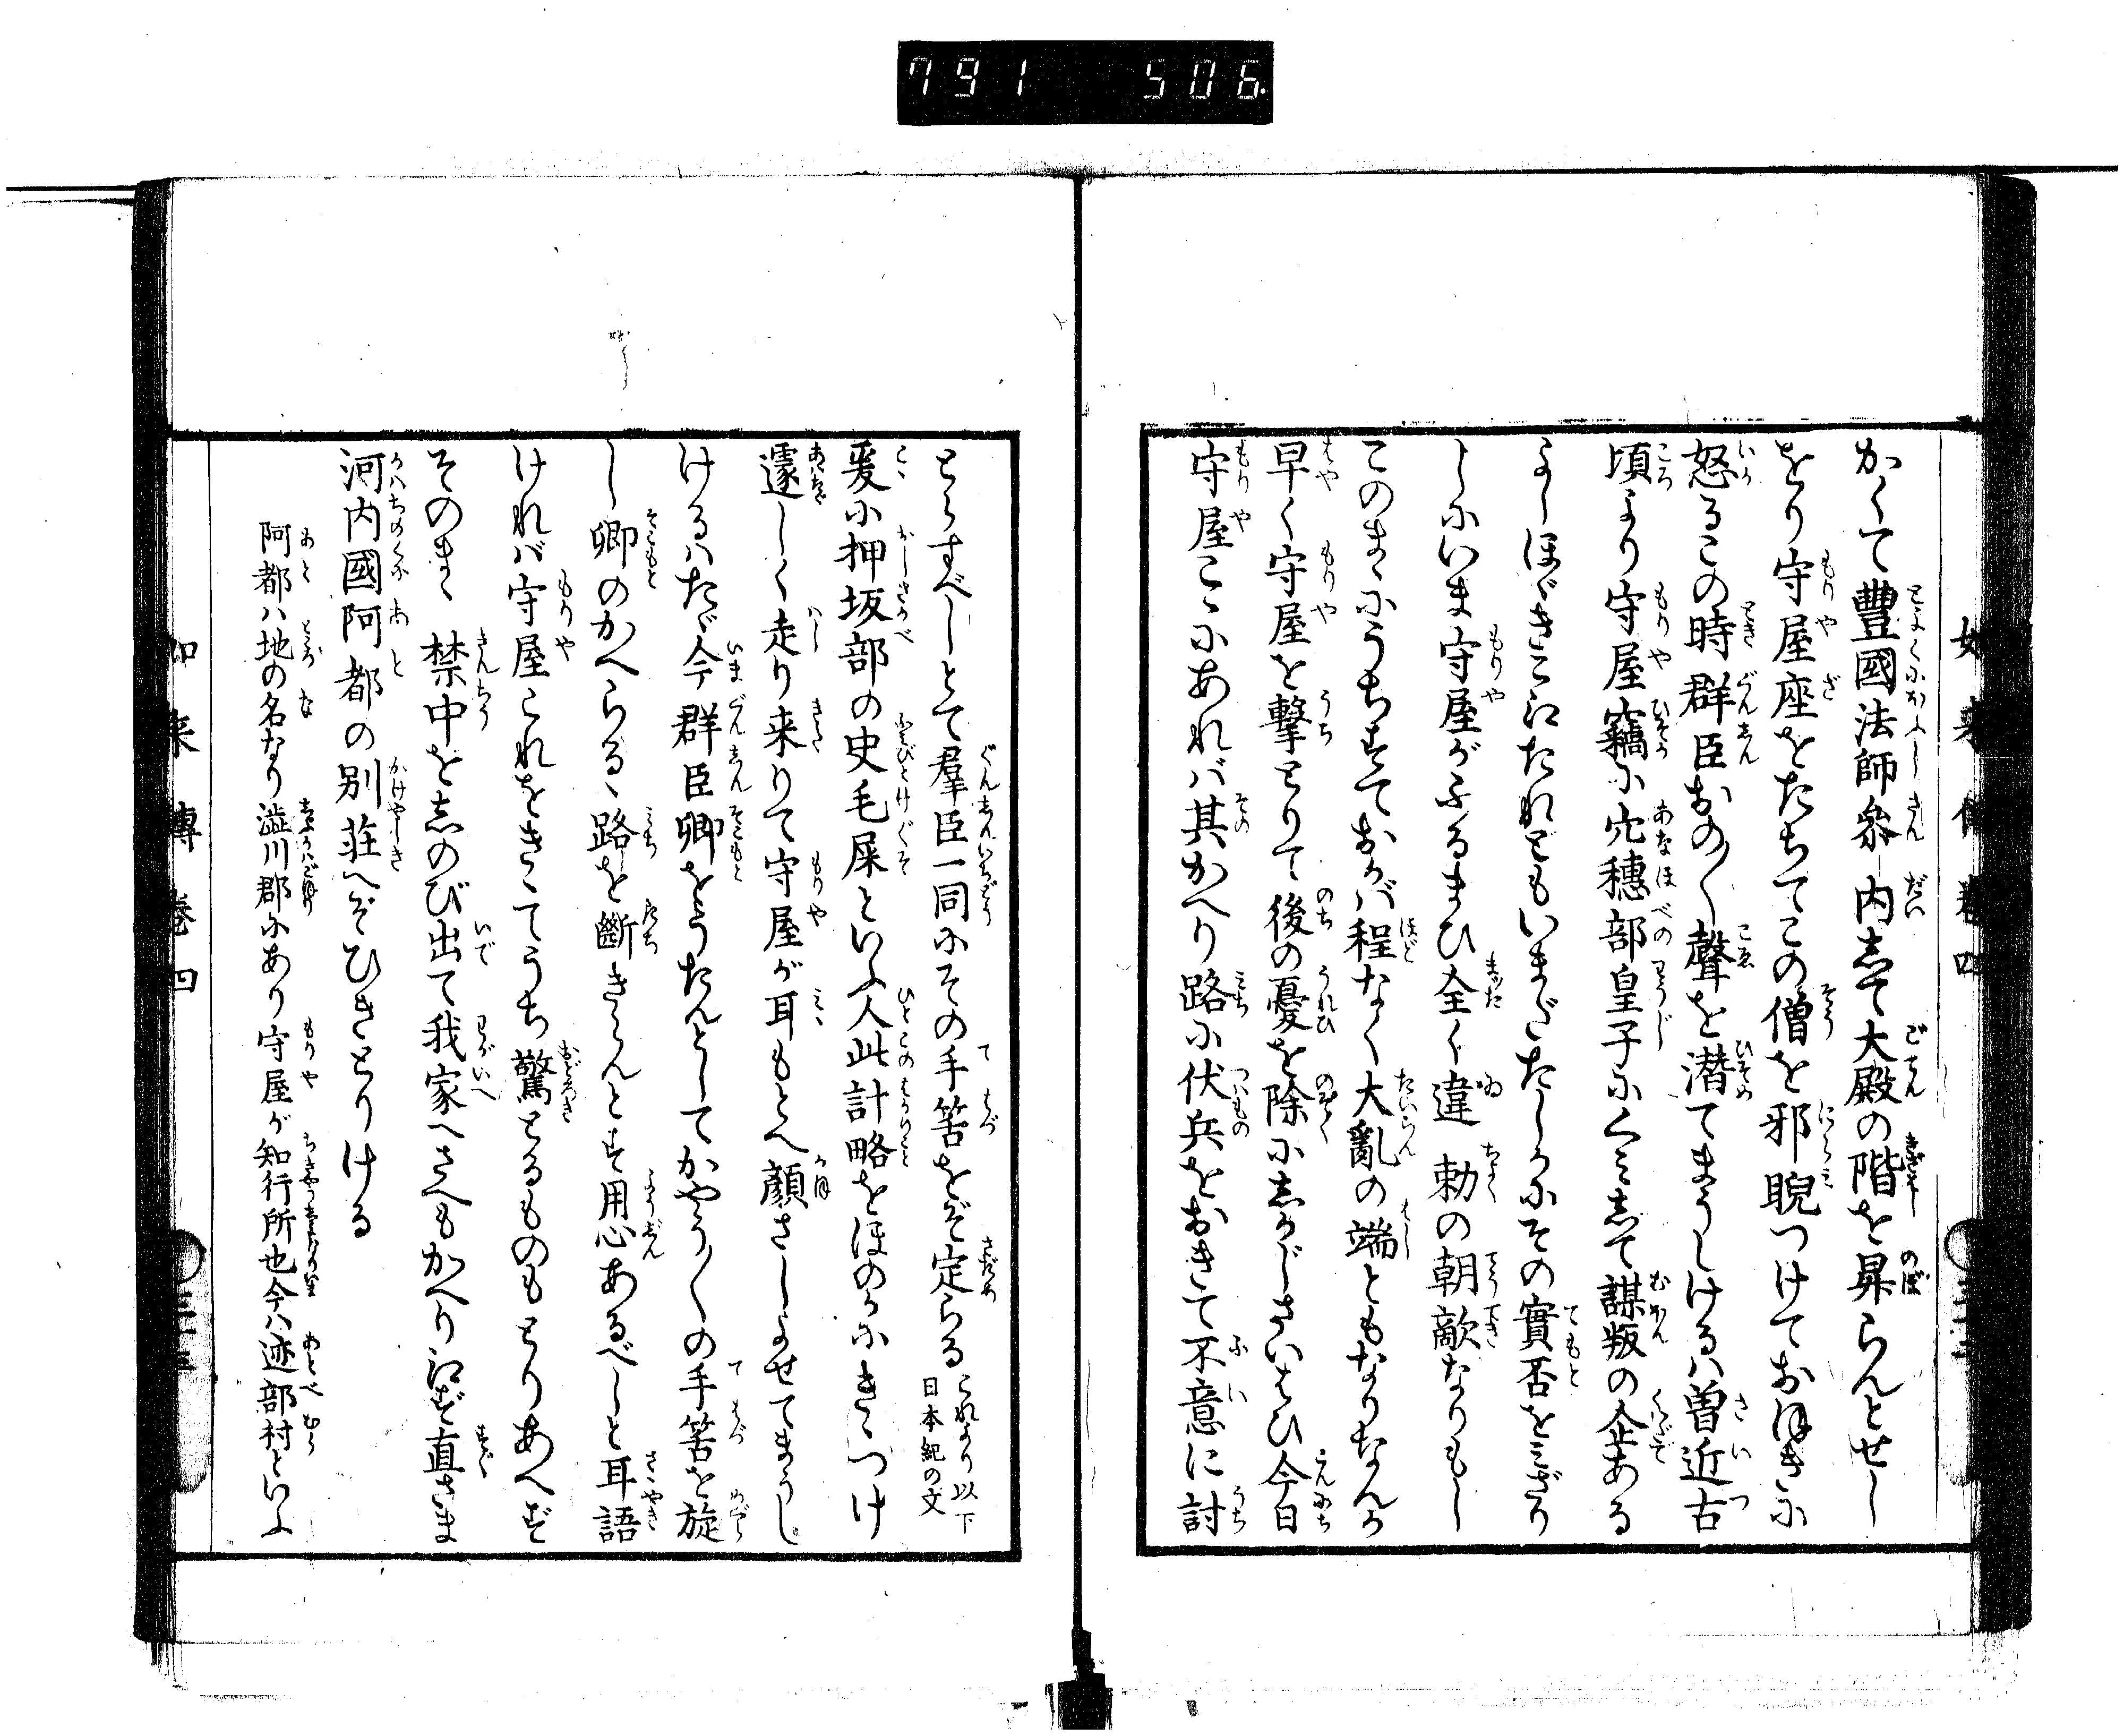 791 506.
かくて豊國法師参内志て大殿の階を昇らんとせし
をり守屋座をたちてこの僧を邪睨つけておほきに
怒るこの時群臣おの〱聲を潜てまうしけるハ曽近古
頃より守屋竊に穴穂部皇子にくミ志て謀叛の企ある
よしほゞきこえたれどもいまだたしかにその實否をミざり
しにいま守屋がふるまひ全く違勅の朝敵なりもし
このまゝにうちすておかバ程なく大亂の端ともなりなんか
早く守屋を撃とりて後の憂を除に志かじさいはひ今日
守屋こゝにあれバ其かへり路に伏兵をおきて不意に討
とらすべしとて羣臣一同にその手筈をぞ定らる
これより以下
日本紀の文
爰に押坂部の史毛屎といふ人此計略をほのかにきゝつけ
遽しく走り来りて守屋が耳もとへ顔さしよせてまうし
けるハたゞ今群臣卿をうたんとしてかやう〱の手筈を旋
し卿のかへらるゝ路を断きらんとす用心あるべしと耳語
けれバ守屋これをきゝてうち驚とるものもとりあへず
そのまゝ禁中を志のび出て我家へさへもかへりえず直さま
河内國阿都の別荘へぞひきとりける
阿都ハ地の名なり澁川郡にあり守屋が知行所也今ハ迹部村といふ
如来傳巻四